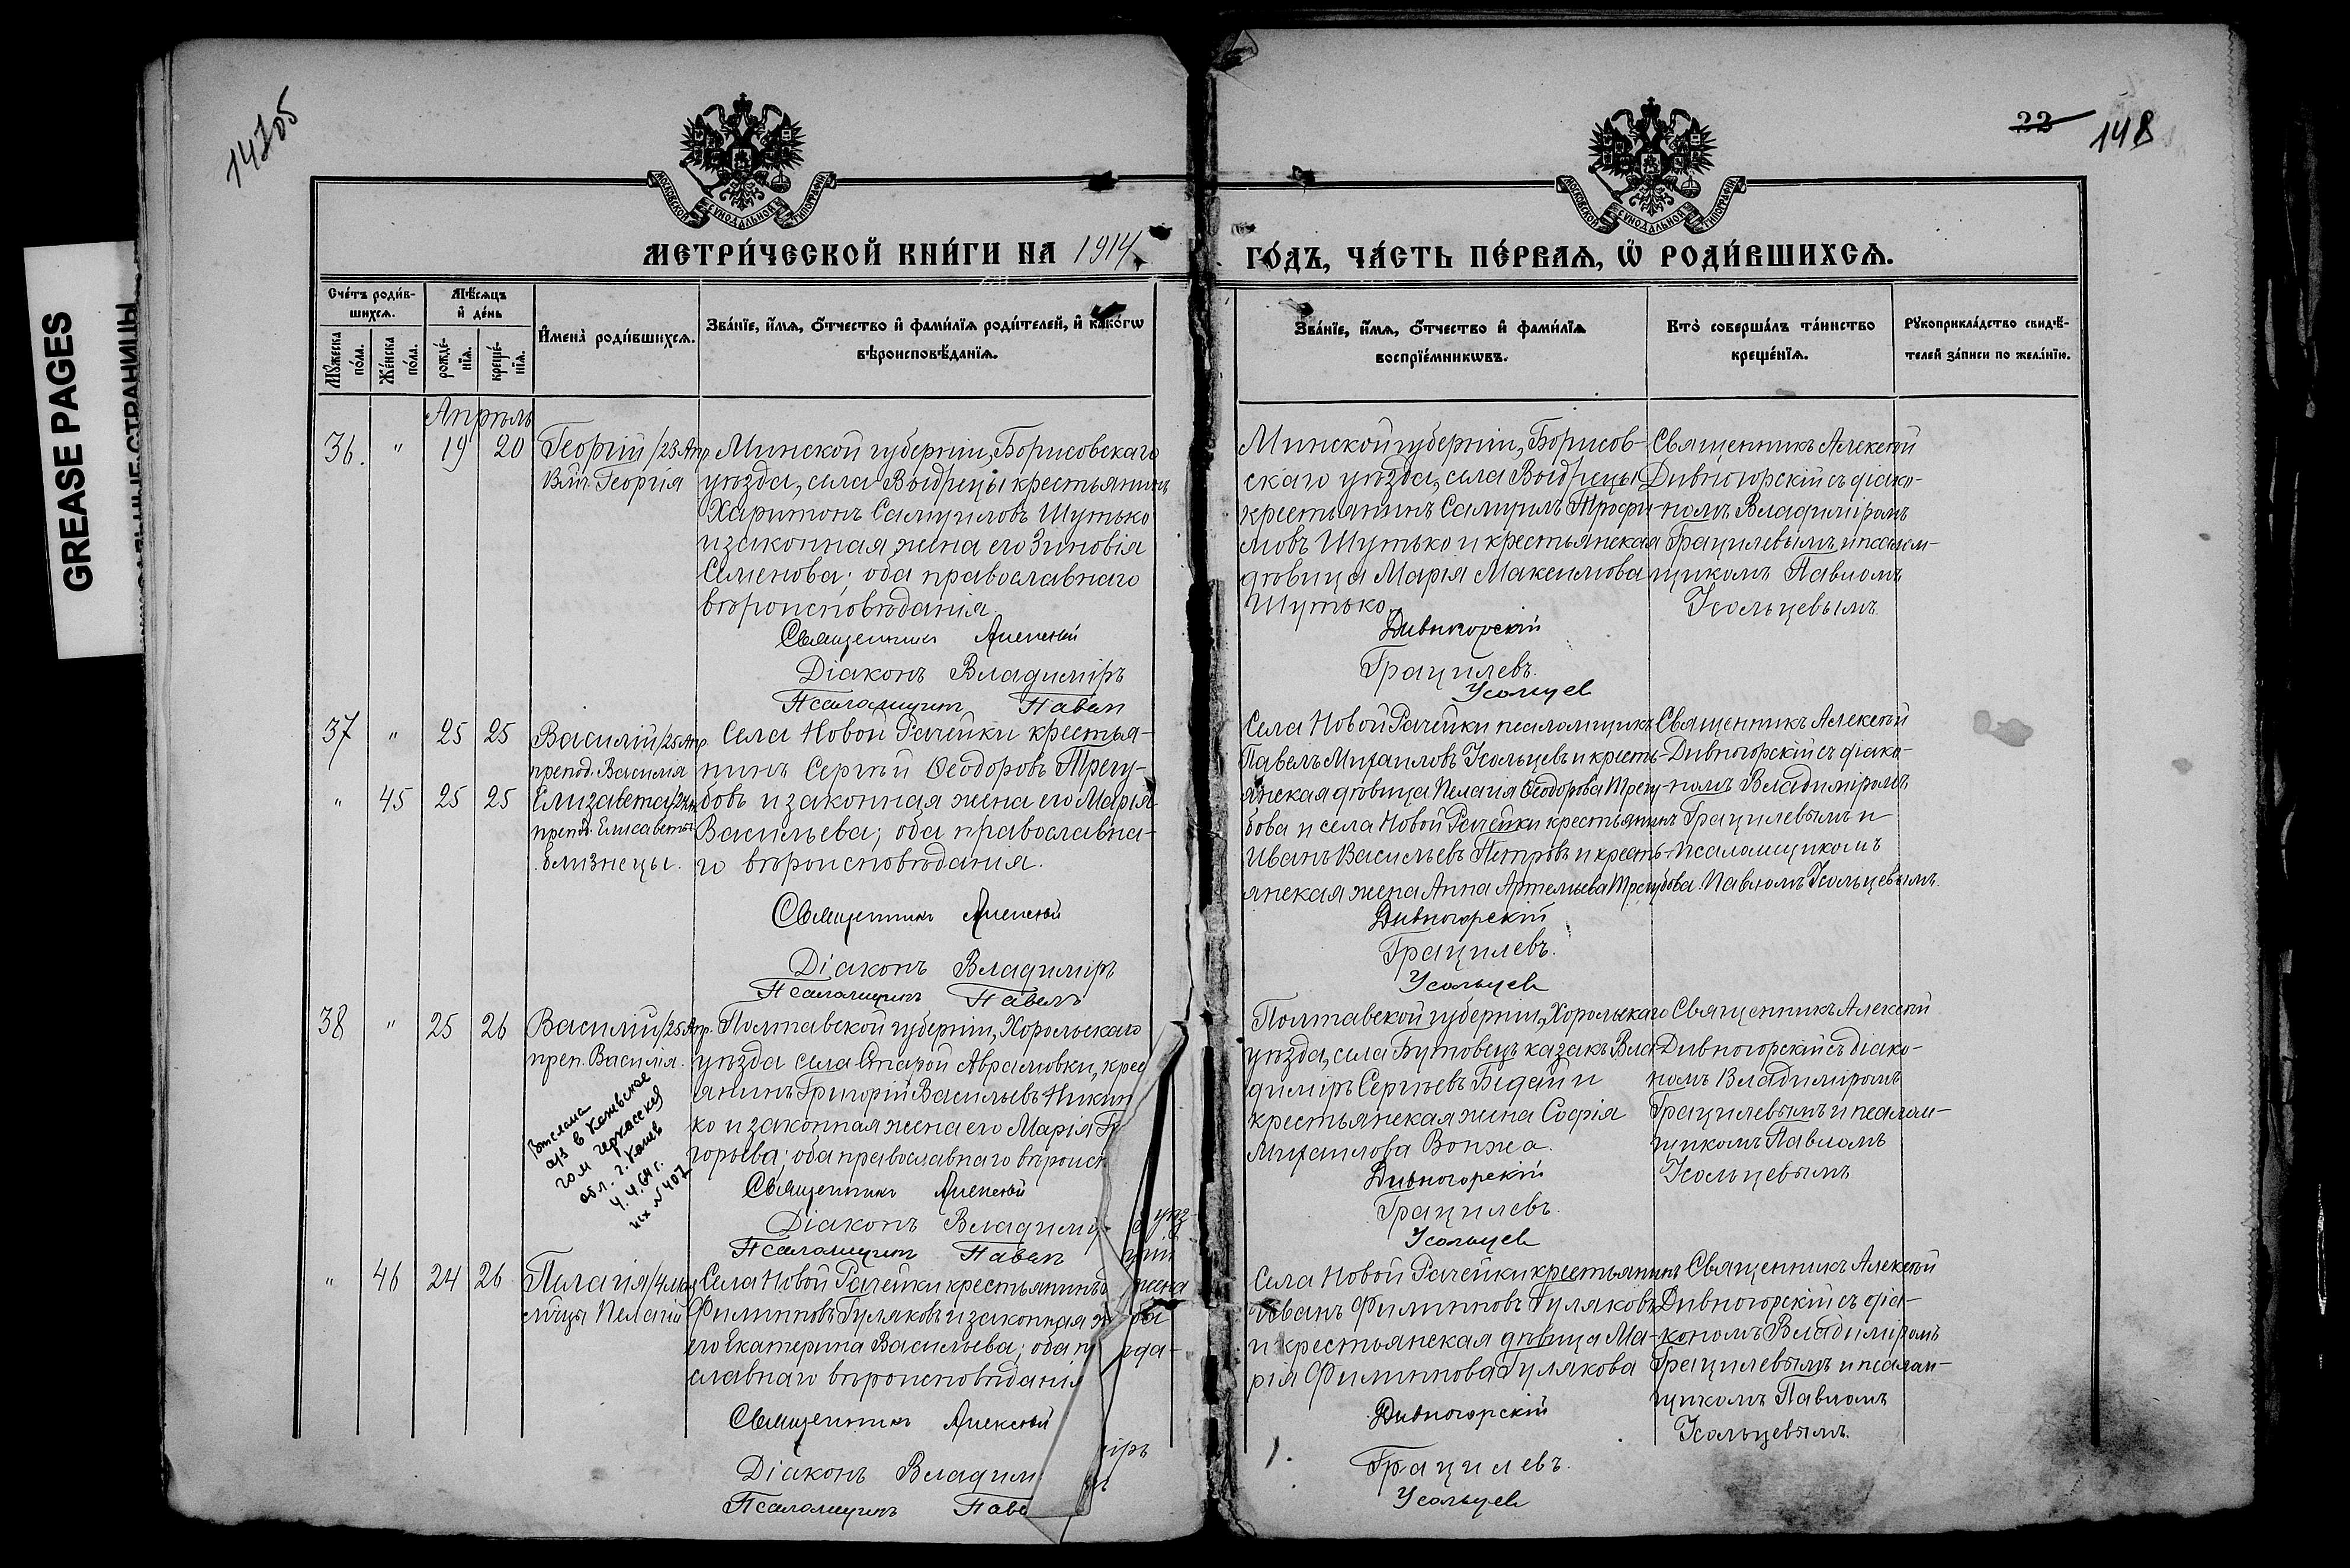 147об
22
148
GREASE PAGES
МОСКОВСКОЙ СѴНОДАЛЬНОЙ ТИПОГРАФІИ
МОСКОВСКОЙ СѴНОДАЛЬНОЙ ТИПОГРАФІИ
МЕТРИ́ЧЕСКОЙ КНИ́ГИ НА 1914
ГО́ДЪ, ЧА́СТЬ ПЕ́РВАѦ, Ѡ҆ РОДИ́ВШИХСѦ.
Сче́тъ роди́в-
шихсѧ.
Мѣ́сѧцъ
и҆ де́нь
Мꙋ́жеска
по́ла.
Же́нска
по́ла.
рожде́-
нїѧ.
креще́-
нїѧ.
И҆мена̀ роди́вшихсѧ.
Зва́нїе, и҆́мѧ, ѻ҆́тчество и҆ фами́лїѧ роди́телей, и҆ како́гѡ
вѣроисповѣ́данїѧ.
Зва́нїе, и҆́мѧ, ѻ҆́тчество и҆ фами́лїѧ
воспрїе́мникѡвъ.
Кто̀ соверша́лъ та́инство
креще́нїѧ.
Рꙋкоприкла́дство свидѣ́-
телей за́писи по жела́нїю.
Апрѣль
36. " 19 20
Георгій /23 Апр.
Влмч. Георгія
Минской губерніи, Борисовскаго
уѣзда, села Выдрицы крестьянинъ
Харитонъ Самуиловъ Шутько
и законная жена его Зиновія
Семенова; оба православнаго
вѣроисповѣданія.
Священникъ Алексѣй
Діаконъ Владиміръ
Псаломщикъ Павелъ
Минской губерніи, Борисов-
скаго уѣзда, села Выдрицы
крестьянинъ Самуилъ Трофи-
мовъ Шутько и крестьянская
дѣвица Марія Максимова
Шутько.
Дивногорскій
Грацилевъ.
Усольцев
Священникъ Алексѣй
Дивногорскій съ діако-
номъ Владиміромъ
Грацилевымъ и псалом-
щикомъ Павломъ
Усольцевымъ.
37 " 25 25
Василій /25 Апр.
препод. Василія
" 45 25 25
Елизавета /24 Апр.
препод. Елисаветы
близнецы.
Села Новой Рачейки крестья-
нинъ Сергѣй Ѳеодоровъ Трегу-
бовъ и законная жена его Марія
Васильева; оба православна-
го вѣроисповѣданія.
Священникъ Алексѣй
Діаконъ Владиміръ
Псаломщикъ Павелъ
Села Новой Рачейки псаломщикъ
Павелъ Михаиловъ Усольцевъ и кресть-
янская дѣвица Пелагія Ѳеодорова Трегу-
бова и села Новой Рачейки крестьянинъ
Иванъ Васильевъ Петровъ и кресть-
янская жена Анна Артемьева Трегубова.
Дивногорскій
Грацилевъ.
Усольцев
Священникъ Алексѣй
Дивногорскій съ діако-
номъ Владиміромъ
Грацилевымъ и
псаломщикомъ
Павломъ Усольцевымъ.
38 " 25 26
Василій /25 Апр.
преп. Василія.
Выслана
а/з в Каневское
обл. г. Канев
4.4.64 г.
исх № 407
Полтавской губерніи, Хорольскаго
уѣзда села Старой Аврамовки, крес
янинъ Григорій Васильевъ Никит
ко и законная жена его Марія Г
горьева; оба православнаго вѣроисп
Священникъ Алексѣй
Діаконъ Владимі
Псаломщикъ Павел
Полтавской губерніи, Хорольскаго
уѣзда, села Бутовецъ казакъ Вла-
диміръ Сергѣевъ Бідай и
крестьянская жена Софія
Михаилова Вонжа.
Дивногорскій
Грацилевъ.
Усольцев
Священникъ Алексѣй
Дивногорскій съ діако-
номъ Владиміромъ
Грацилевымъ и псалом-
щикомъ Павломъ
Усольцевымъ
" 46 24 26
Пелагія /4 мая
мцы Пелагіи
Села Новой Рачейки крестьянинъ
Филипповъ Гуляковъ и законная ж
его Екатерина Васильева; оба п
славнаго вѣроисповѣданія
Священникъ Алексѣй
Діаконъ Владим
Псаломщикъ Паве
Села Новой Рачейки крестьянинъ
Иванъ Филипповъ Гуляковъ
и крестьянская дѣвица Ма-
рія Филиппова Гулякова
Дивногорскій
Грацилевъ.
Усольцев
Священникъ Алексѣй
Дивногорскій съ діа-
кономъ Владиміромъ
Грацилевымъ и псалом-
щикомъ Павломъ
Усольцевымъ.